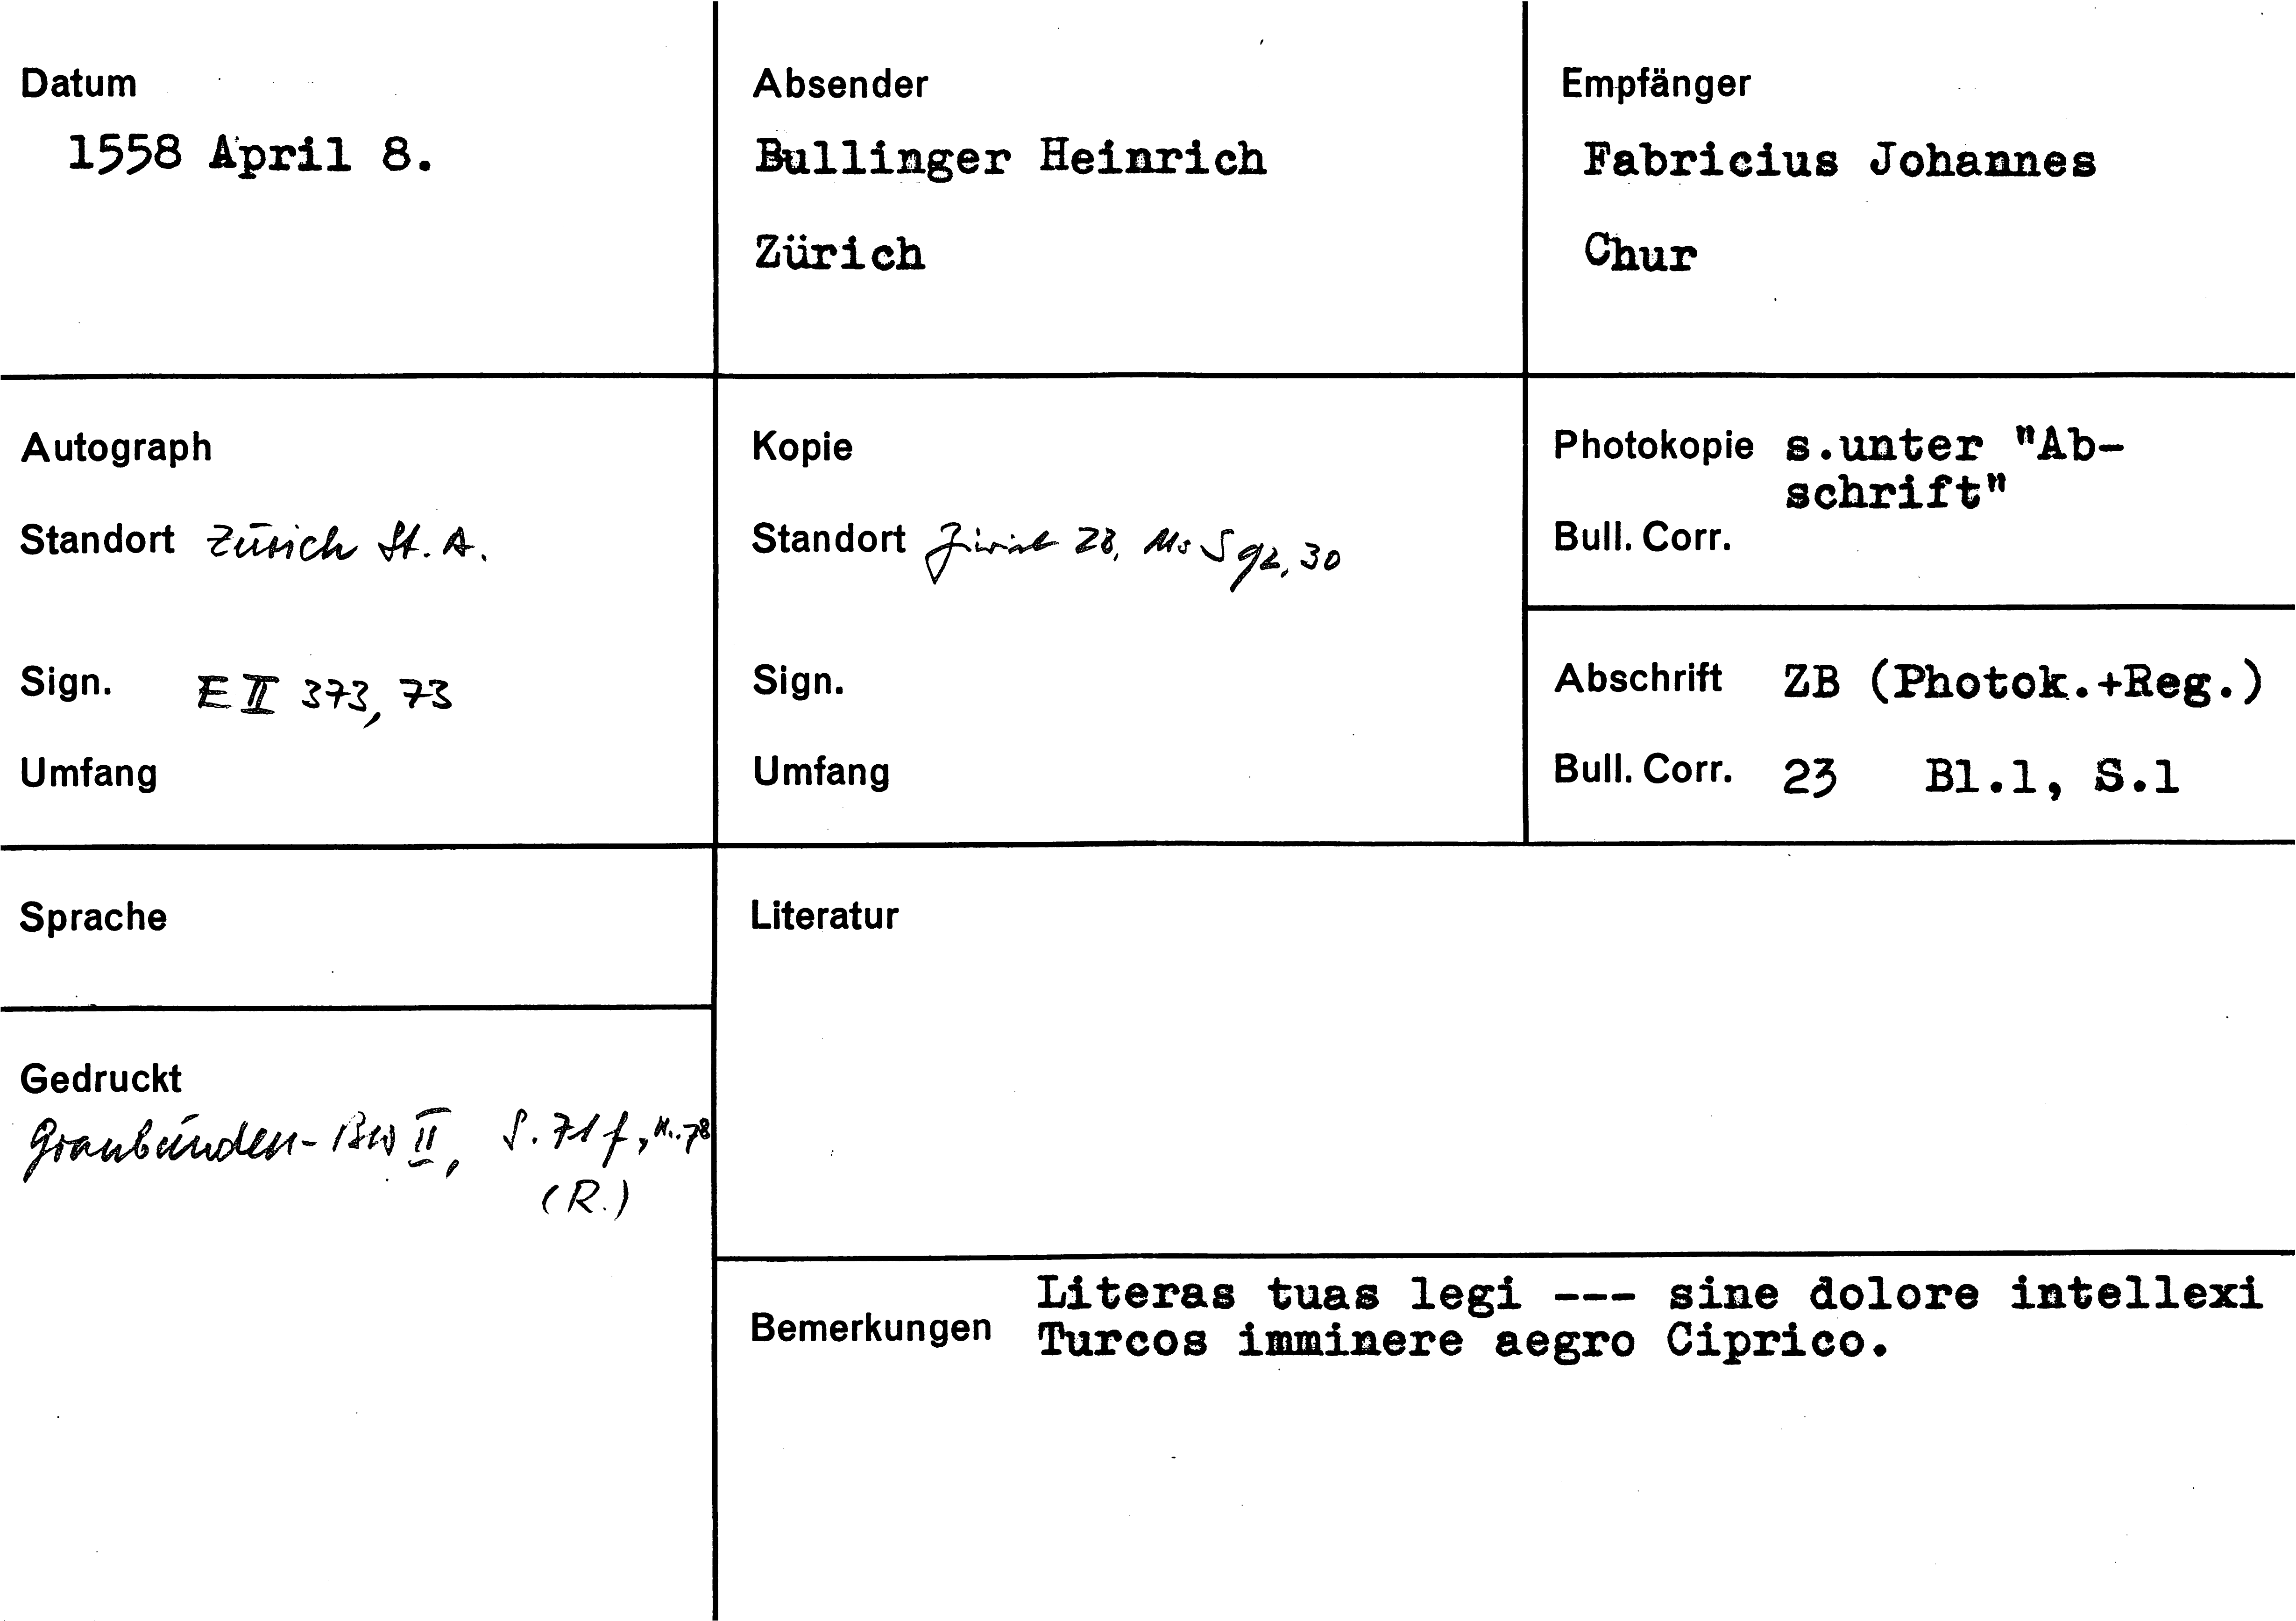 Datum
1558 April 8.
Absender
Bullinger Heinrich
Zürich
Empfänger
Fabricius Johannes
Chur
Autograph
Standort Zürich St. A.
Sign. E II 373, 73
Umfang
Kopie
Standort Zürich ZB, Ms S 92, 30
Sign.
Umfang
Photokopie s.unter "Ab-
schrift"
Bull. Corr.
Abschrift ZB (Photok.+Reg.)
Bull. Corr. 23 Bl.1, S.1
Sprache
Literatur
Gedruckt
Graubünden-BW II, S. 71 f, Nr. 78
(R.)
Bemerkungen Literas tuas legi --- sine dolore intellexi
Turcos imminere aegro Ciprico.